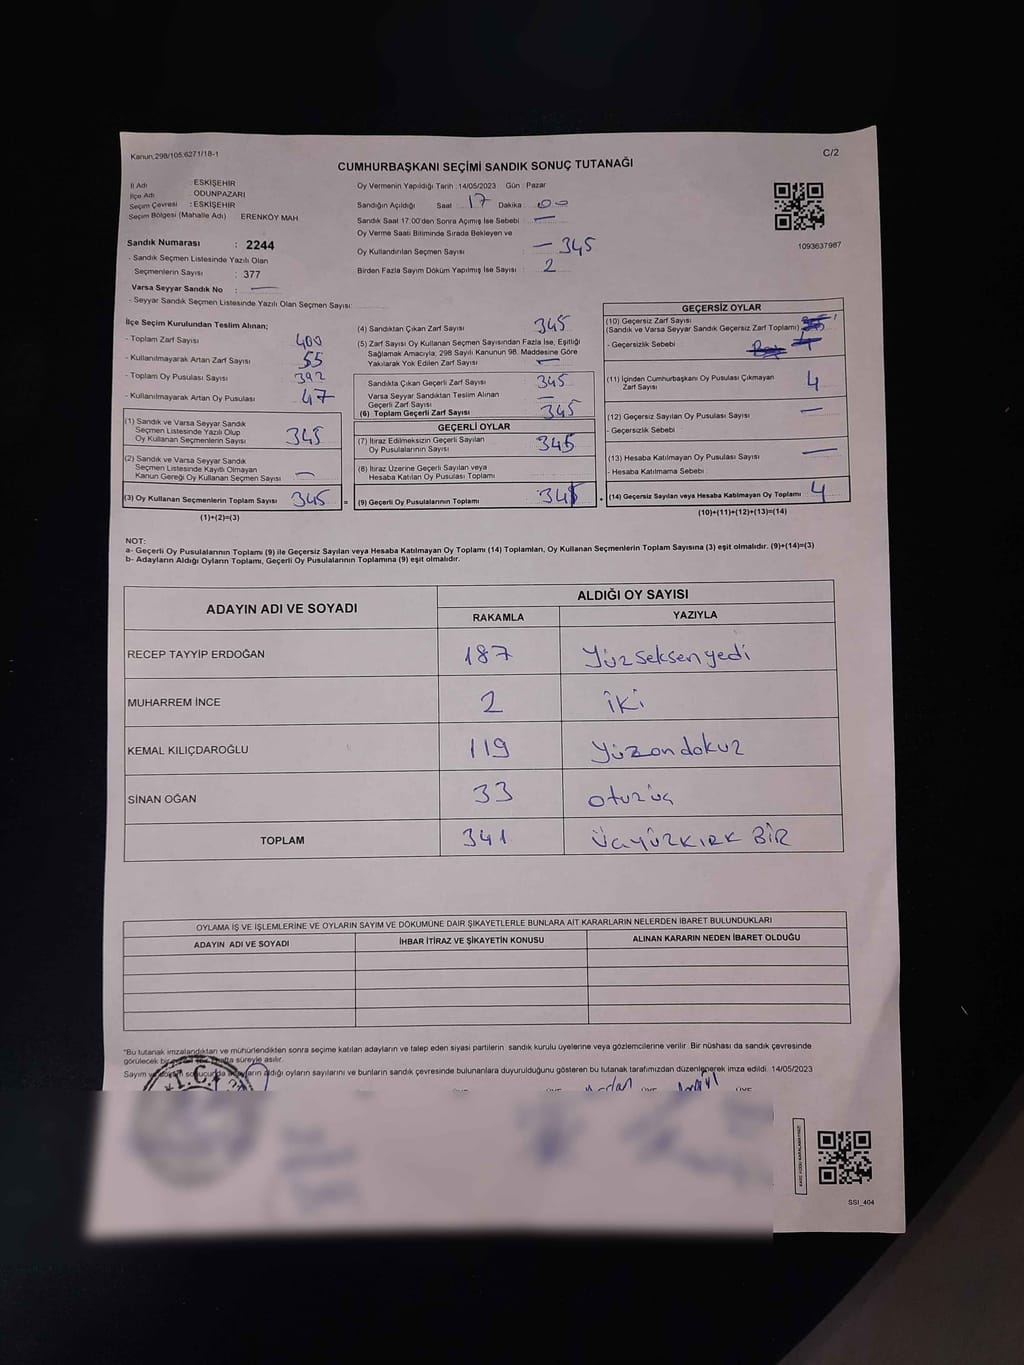 Kanun:298/105:6271/18-1
C/2
CUMHURBAŞKANI SEÇİMİ SANDIK SONUÇ TUTANAĞI
İl Adı : ESKİŞEHİR
İlçe Adı : ODUNPAZARI
Seçim Çevresi : ESKİŞEHİR
Seçim Bölgesi (Mahalle Adı) ERENKÖY MAH.
Sandık Numarası : 2244
- Sandık Seçmen Listesinde Yazılı Olan
Seçmenlerin Sayısı : 377
Varsa Seyyar Sandık No : —
- Seyyar Sandık Seçmen Listesinde Yazılı Olan Seçmen Sayısı:
Oy Vermenin Yapıldığı Tarih :14/05/2023 Gün : Pazar
Sandığın Açıldığı Saat 17 Dakika 00
Sandık Saat 17:00'den Sonra Açımış İse Sebebi : —
Oy Verme Saati Bitiminde Sırada Bekleyen ve
Oy Kullandırılan Seçmen Sayısı : — 345
Birden Fazla Sayım Döküm Yapılmış İse Sayısı : 2
1093637987
İlçe Seçim Kurulundan Teslim Alınan;
- Toplam Zarf Sayısı 400
- Kullanılmayarak Artan Zarf Sayısı 55
- Toplam Oy Pusulası Sayısı 392
- Kullanılmayarak Artan Oy Pusulası 47
(1) Sandık ve Varsa Seyyar Sandık
Seçmen Listesinde Yazılı Olup
Oy Kullanan Seçmenlerin Sayısı 345
(2) Sandık ve Varsa Seyyar Sandık
Seçmen Listesinde Kayıtlı Olmayan
Kanun Gereği Oy Kullanan Seçmen Sayısı —
(3) Oy Kullanan Seçmenlerin Toplam Sayısı 345 =
(1)+(2)=(3)
(4) Sandıktan Çıkan Zarf Sayısı 345
(5) Zarf Sayısı Oy Kullanan Seçmen Sayısından Fazla İse, Eşitliği
Sağlamak Amacıyla; 298 Sayılı Kanunun 98. Maddesine Göre
Yakılarak Yok Edilen Zarf Sayısı —
Sandıkta Çıkan Geçerli Zarf Sayısı 345
Varsa Seyyar Sandıktan Teslim Alınan
Geçerli Zarf Sayısı —
(6) Toplam Geçerli Zarf Sayısı 345
GEÇERLİ OYLAR
(7) İtiraz Edilmeksizin Geçerli Sayılan
Oy Pusulalarının Sayısı
(8) İtiraz Üzerine Geçerli Sayılan veya
Hesaba Katılan Oy Pusulası Toplamı
(9) Geçerli Oy Pusulalarının Toplamı +
GEÇERSİZ OYLAR
(10) Geçersiz Zarf Sayısı
(Sandık ve Varsa Seyyar Sandık Geçersiz Zarf Toplamı)
- Geçersizlik Sebebi
(11) İçinden Cumhurbaşkanı Oy Pusulası Çıkmayan
Zarf Sayısı 4
(12) Geçersiz Sayılan Oy Pusulası Sayısı —
- Geçersizlik Sebebi
(13) Hesaba Katılmayan Oy Pusulası Sayısı —
- Hesaba Katılmama Sebebi
(14) Geçersiz Sayılan veya Hesaba Katılmayan Oy Toplamı 4
(10)+(11)+(12)+(13)=(14)
NOT:
a- Geçerli Oy Pusulalarının Toplamı (9) ile Geçersiz Sayılan veya Hesaba Katılmayan Oy Toplamı (14) Toplamları, Oy Kullanan Seçmenlerin Toplam Sayısına (3) eşit olmalıdır. (9)+(14)=(3)
b- Adayların Aldığı Oyların Toplamı, Geçerli Oy Pusulalarının Toplamına (9) eşit olmalıdır.
ADAYIN ADI VE SOYADI
ALDIĞI OY SAYISI
RAKAMLA YAZIYLA
RECEP TAYYİP ERDOĞAN 187 Yüzseksenyedi
MUHARREM İNCE 2 iki
KEMAL KILIÇDAROĞLU 119 Yüzondokuz
SİNAN OĞAN 33 otuzüç
TOPLAM 341 ÜçYÜZKIRK BİR
OYLAMA İŞ VE İŞLEMLERİNE VE OYLARIN SAYIM VE DÖKÜMÜNE DAİR ŞİKAYETLERLE BUNLARA AİT KARARLARIN NELERDEN İBARET BULUNDUKLARI
ADAYIN ADI VE SOYADI İHBAR İTİRAZ VE ŞİKAYETİN KONUSU ALINAN KARARIN NEDEN İBARET OLDUĞU
"Bu tutanak imzalandıktan ve mühürlendikten sonra seçime katılan adayların ve talep eden siyasi partilerin sandık kurulu üyelerine veya gözlemcilerine verilir. Bir nüshası da sandık çevresinde
görülecek bir hafta süreyle asılır.
Sayım adayların aldığı oyların sayılarını ve bunların sandık çevresinde bulunanlara duyurulduğunu gösteren bu tutanak tarafımızdan düzenlenerek imza edildi. 14/05/2023
T.C.
SSI_404